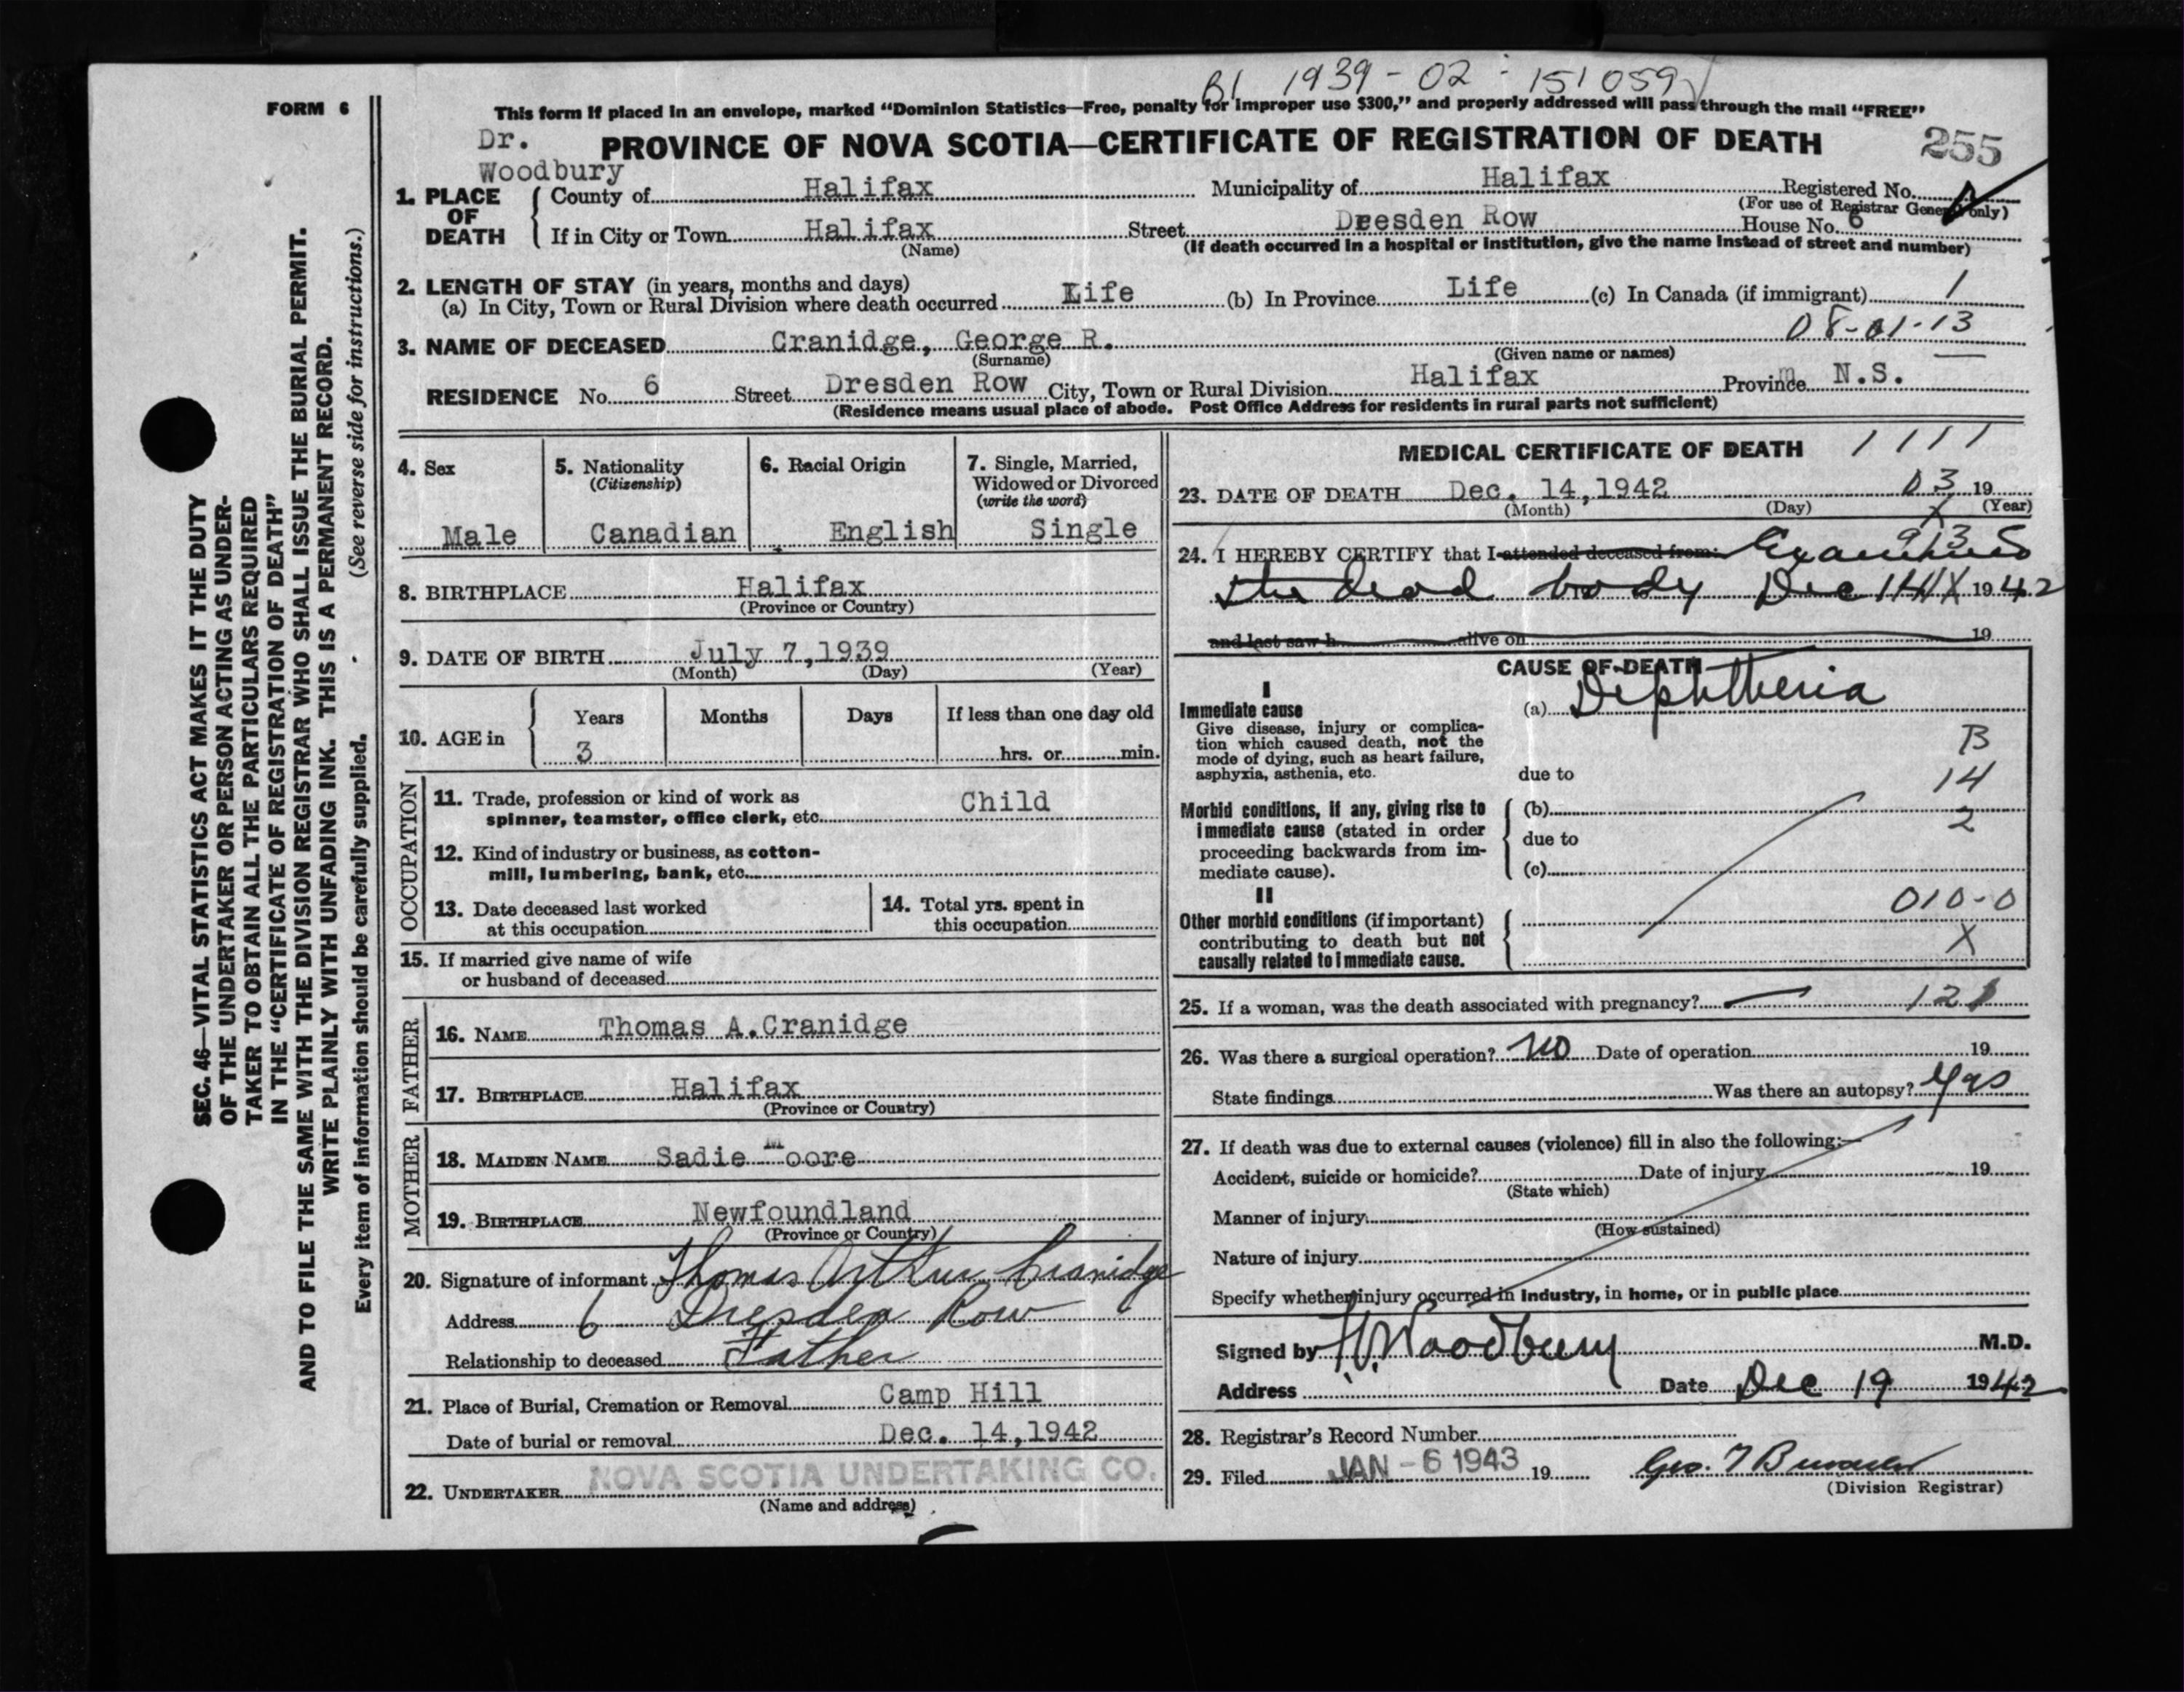 B1 1939-02-151059
FORM 6
This form if placed in an envelope, marked “Dominion Statistics—Free, penalty for improper use $300,” and properly addressed will pass through the mail “FREE”
Dr.
Woodbury
PROVINCE OF NOVA SCOTIA—CERTIFICATE OF REGISTRATION OF DEATH
255
1. PLACE OF DEATH
County of Halifax Municipality of Halifax Registered No.
(For use of Registrar General only)
If in City or Town Halifax Street Dresden Row House No. 6
(Name) (If death occurred in a hospital or institution, give the name instead of street and number)
2. LENGTH OF STAY (in years, months and days)
(a) In City, Town or Rural Division where death occurred Life (b) In Province Life (c) In Canada (if immigrant) 1
08-01-13
3. NAME OF DECEASED Cranidge, George R.
(Surname) (Given name or names)
RESIDENCE No. 6 Street Dresden Row City, Town or Rural Division Halifax Province N.S.
(Residence means usual place of abode. Post Office Address for residents in rural parts not sufficient)
4. Sex
Male
5. Nationality
(Citizenship)
Canadian
6. Racial Origin
English
7. Single, Married,
Widowed or Divorced
(write the word)
Single
8. BIRTHPLACE Halifax
(Province or Country)
9. DATE OF BIRTH July 7,1939
(Month) (Day) (Year)
10. AGE in
Years Months Days If less than one day old
3 hrs. or min.
OCCUPATION
11. Trade, profession or kind of work as
spinner, teamster, office clerk, etc. Child
12. Kind of industry or business, as cotton-
mill, lumbering, bank, etc.
13. Date deceased last worked
at this occupation
14. Total yrs. spent in
this occupation
15. If married give name of wife
or husband of deceased
FATHER
16. NAME Thomas A.Cranidge
17. BIRTHPLACE Halifax
(Province or Country)
MOTHER
18. MAIDEN NAME Sadie Moore
19. BIRTHPLACE Newfoundland
(Province or Country)
20. Signature of informant Thomas Arthur Cranidge
Address 6 Dresden Row
Relationship to deceased Father
21. Place of Burial, Cremation or Removal Camp Hill
Date of burial or removal Dec. 14,1942
22. UNDERTAKER NOVA SCOTIA UNDERTAKING CO.
(Name and address)
MEDICAL CERTIFICATE OF DEATH
1111
23. DATE OF DEATH Dec. 14,1942 03 19
(Month) (Day) (Year)
X
24. I HEREBY CERTIFY that I attended deceased from: Examined
913
the dead body Dec 14 1942
and last saw h alive on 19
CAUSE OF DEATH
I
Immediate cause
Give disease, injury or complica-
tion which caused death, not the
mode of dying, such as heart failure,
asphyxia, asthenia, etc.
(a) Diphtheria
B
due to
14
Morbid conditions, if any, giving rise to
immediate cause (stated in order
proceeding backwards from im-
mediate cause).
(b)
2
due to
(c)
II
010-0
Other morbid conditions (if important)
contributing to death but not
causally related to immediate cause.
X
25. If a woman, was the death associated with pregnancy? 121
26. Was there a surgical operation? no Date of operation 19
State findings Was there an autopsy? Yes
27. If death was due to external causes (violence) fill in also the following:—
Accident, suicide or homicide? Date of injury 19
(State which)
Manner of injury
(How sustained)
Nature of injury
Specify whether injury occurred in industry, in home, or in public place
Signed by Woodbury M.D.
Address Date Dec 19 1942
28. Registrar's Record Number
29. Filed JAN -6 1943 19
(Division Registrar)
SEC. 46—VITAL STATISTICS ACT MAKES IT THE DUTY
OF THE UNDERTAKER OR PERSON ACTING AS UNDER-
TAKER TO OBTAIN ALL THE PARTICULARS REQUIRED
IN THE “CERTIFICATE OF REGISTRATION OF DEATH”
AND TO FILE THE SAME WITH THE DIVISION REGISTRAR WHO SHALL ISSUE THE BURIAL PERMIT.
WRITE PLAINLY WITH UNFADING INK. THIS IS A PERMANENT RECORD.
Every item of information should be carefully supplied. (See reverse side for instructions.)